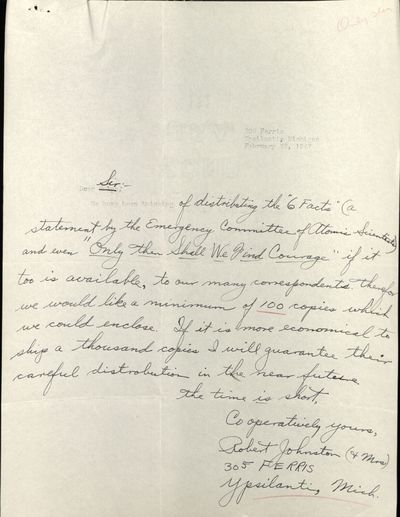 Only then
305 Ferris
Ypsilanti, Michigan
February 22, 1947
Dear Sir:-
We have been thinking of distributing the "6 Facts" (a
statement by the Emergency Committee of Atomic Scientists)
and even "Only then Shall We Find Courage" if it
too is available, to our many correspondents. Therefor
we would like a minimum of 100 copies which
we could enclose. If it is more economical to
ship a thousand copies I will guarantee their
careful distrobution in the near future.
The time is short.
Cooperatively yours,
Robert Johnston (& Mrs)
305 FERRIS
Ypsilanti, Mich.